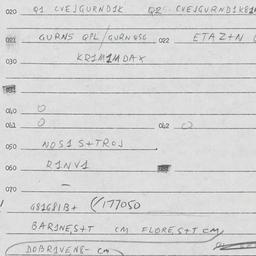 020 Q1 CVEJGURND1K Q2 CVEJGURND1K81
021 GURNS QPL/GURNQSC 022 ETAZ+N
030 KR1M1MDAX
040 0
041 0 042 0
050 NOS1 S+TROJ
060 R1NV1
070 -
G81G81B+ /177050
BAR1NES+T CM FLORES+T CM
DOBR1VEN8- CM